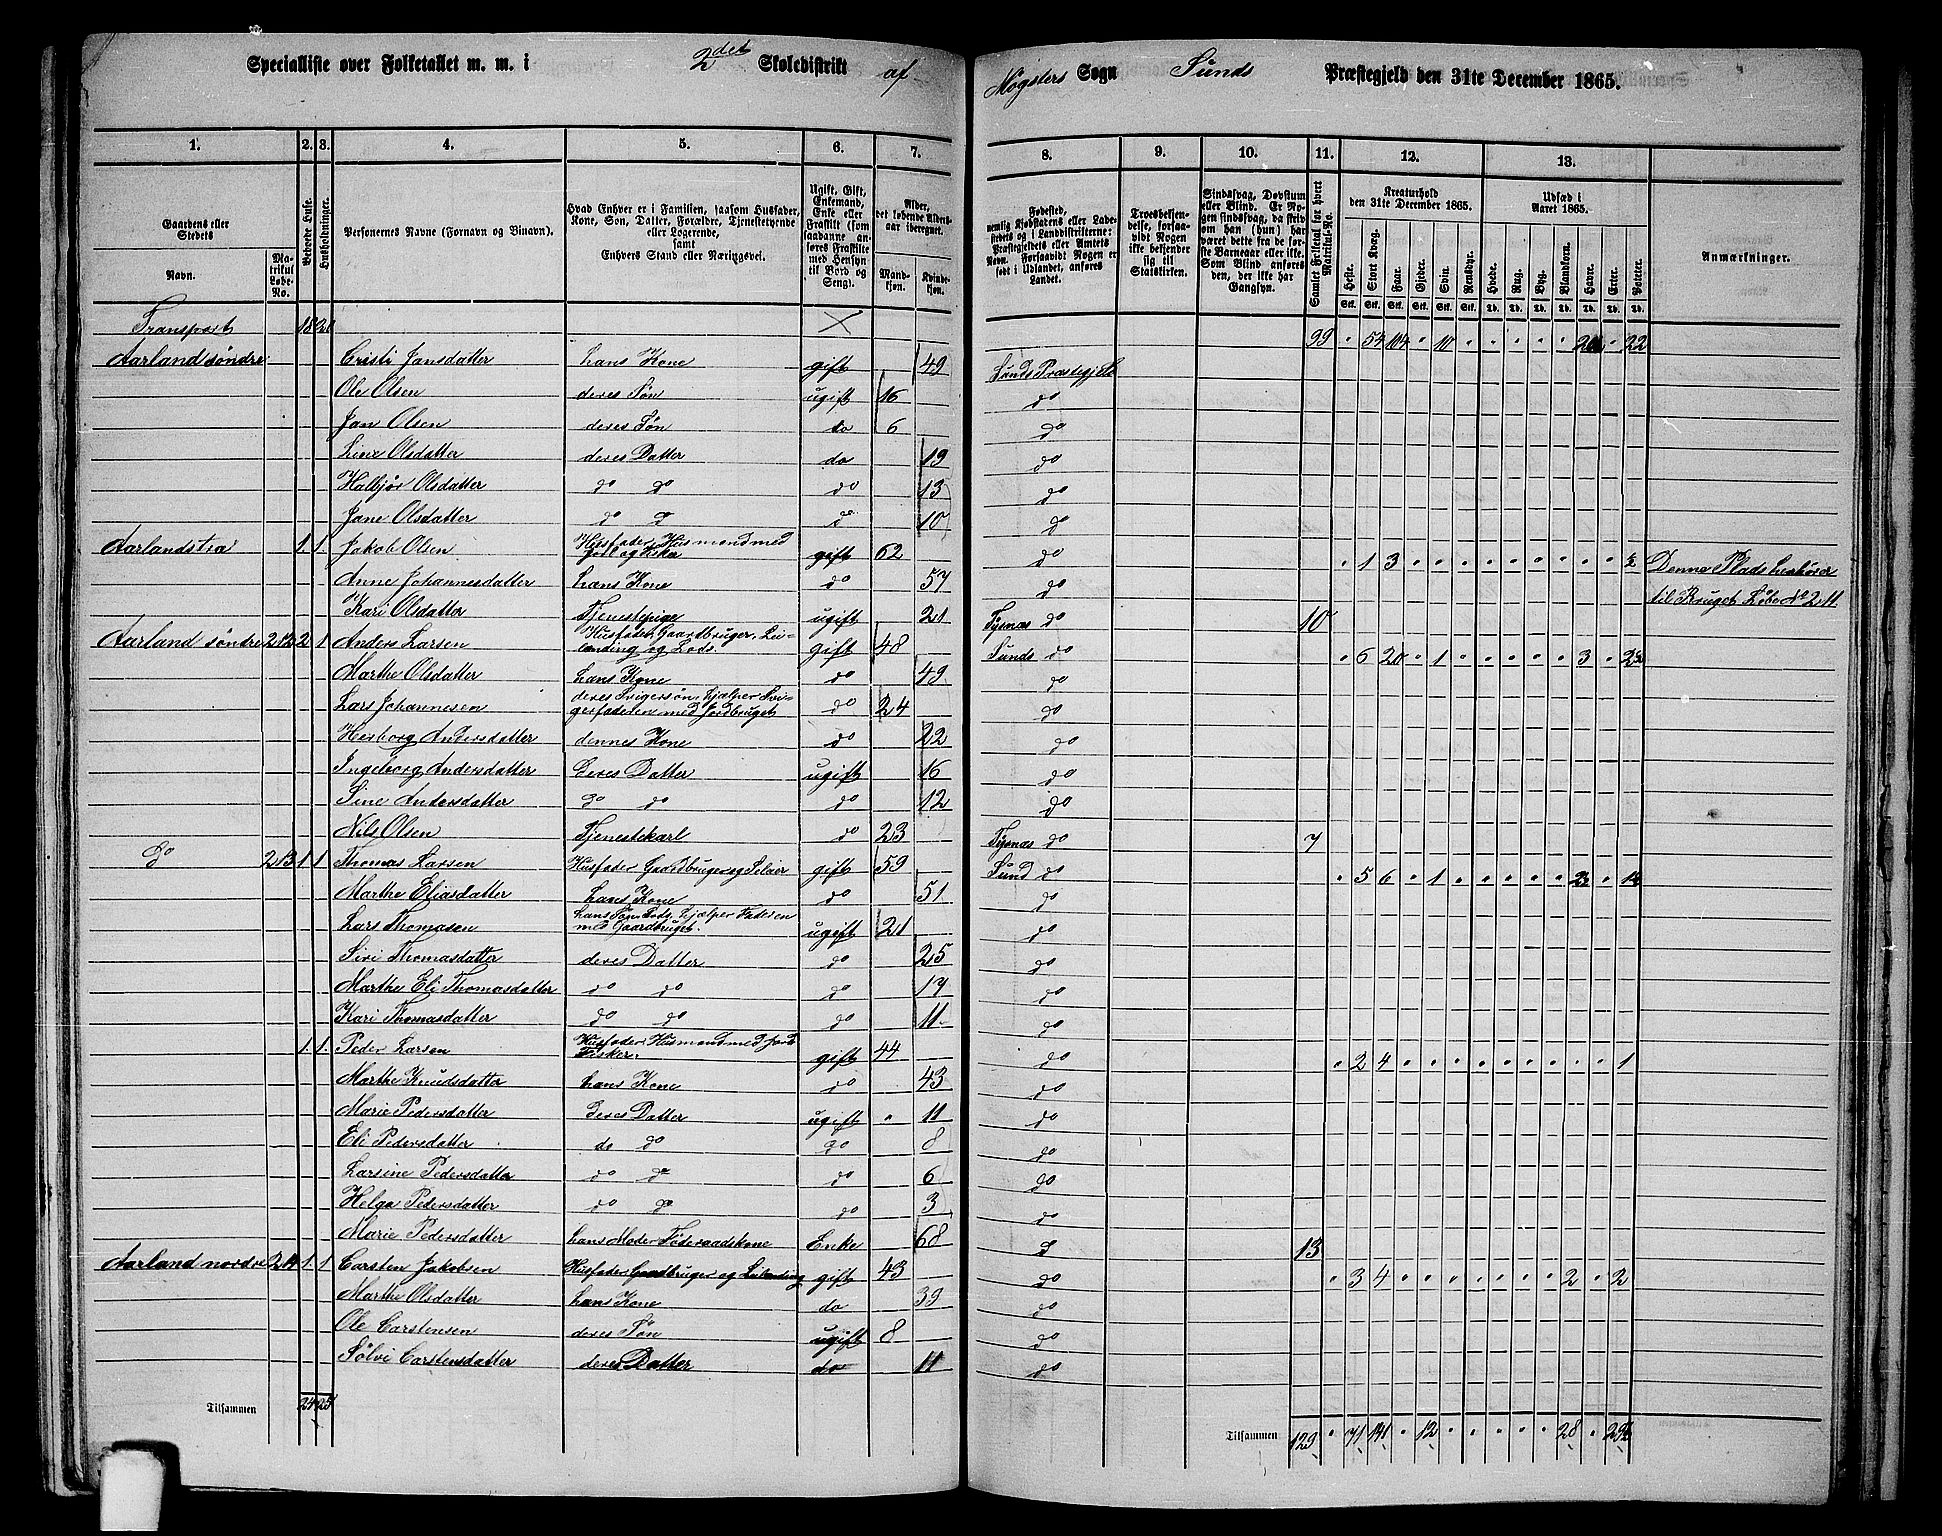 Specialliste over Folketallet m. m. i 2det Skoledistrikt af Møgsters Sogn Sunds Præstegjeld den 31te December 1865.
1. 2. 3. 4. 5. 6. 7. 8. 9. 10. 11. 12. 13.
Gaardens eller Stedets
Navn.
Matrikul Løbe-No.
Beboede Huse.
Husholdninger.
Personernes Navne (Fornavn og Binavn).
Hvad Enhver er i Familien, saasom Husfader, Kone, Søn, Datter, Forældre, Tjenestetyende eller Logerende, samt Enhvers Stand eller Næringsvei.
Ugift, Gift, Enkemand, Enke eller Fraskilt (som saadanne anføres Fraskilte med Hensyn til Bord og Seng).
Alder, det løbende Alders-aar iberegnet.
Mandkjøn. Kvindekjøn.
Fødested, nemlig Kjøbstadens eller Ladestedets og i Landdistrikterne: Præstegjeldets eller Amtets Navn. Forsaavidt Nogen er født i Udlandet, anføres Landet.
Troesbekjendelse, forsaavidt Nogen ikke bekjender sig til Statskirken.
Sindssvag, Døvstum eller Blind. Er Nogen sindssvag, da skriv om han (hun) har været dette fra de første Barneaar eller ikke. Som Blind anføres den, der ikke har Gangsyn.
Samlet Folketal for hvert Matrikul-No.
Kreaturhold den 31te December 1865.
Heste. Stort Kvæg. Faar. Gjeder. Svin. Rensdyr.
Udsæd i Aaret 1865.
Hvede. Rug. Byg. Blandkorn. Havre. Erter. Poteter.
Stk. Stk. Stk. Stk. Stk. Stk. Td. Td. Td. Td. Td. Td. Td.
Anmærkninger.
Transport 18 20 × 99 " 54 104 " 10 " " " " " " 22
Aarland søndre Cristi Jansdatter hans Kone gift 49 Sunds Præstegjeld
Ole Olsen deres Søn ugift 16 do
Jan Olsen deres Søn do 6 do
Line Olsdatter deres Datter do 19 do
Halbjør Olsdatter do do do 13 do
Jane Olsdatter do do do 10 do
Aarlandstræ 1. 1. Jakob Olsen Husfader, Husmand med Jord og Fisker gift 62 do " 1 3 " " " " " " " " " Denne Plads henhører
Anne Johannesdatter hans Kone do 57 do til Bruget Løbe No 211
Kari Olsdatter Tjenestepige ugift 21 Tysnæs do 10
Aarland søndre 212 2 1 Anders Larsen Husfader, Gaardbruger, Leilænding og Lods. gift 48 Sunds do " 6 20 " 1 " " " " " 3 " 2½
Marthe Olsdatter hans Kone do 49 do
Lars Johannesen deres Svigersøn, hjælper Svigerfaderen med Jordbruget do 24 do
Herborg Andersdatter dennes Kone do 22 do
Ingeborg Andersdatter deres Datter ugift 16 do
Sine Andersdatter do do do 12 do
Nils Olsen Tjenestekarl do 23 Tysnæs do 7
do 213 1. 1 Thomas Larsen Husfader Gaardbruger og Seleier gift 59 Sund do " 5 6 " 1 " " " " "
Marthe Eliasdatter hans Kone do 51 do
Lars Thomasen hans Søn, Lods, hjælper Faderen med Gaardbruget. ugift 21 do
Siri Thomasdatter deres Datter do 25 do
Marthe Eli Thomasdatter do do do 17 do
Kari Thomasdatter do do do 11 do
1. 1. Peder Larsen Husfader, Husmand med Jord Fisker. gift 44 do " 2 4 " " " " " " " " " 1
Marthe Knudsdatter hans Kone do 43 do
Marie Pedersdatter deres Datter ugift " 11 do
Eli Pedersdatter do do do 8 do
Larsine Pedersdatter do do do 6 do
Helga Pedersdatter do do do 3 do
Marie Pedersdatter hans Moder Føderaadskone Enke 68 do 13
Aarland nordre 214 1. 1 Carsten Jakobsen Husfader Gaardbruger og Leilænding gift 43 do " 3 4 " " " " " " " 2 " 2
Marthe Olsdatter hans Kone do 39 do
Ole Carstensen deres Søn ugift 8 do
Sølvi Carstensdatter deres Datter do 11 do
Tilsammen 24 25 Tilsammen 129 " 71 141 " 12 " " " " " 28 "